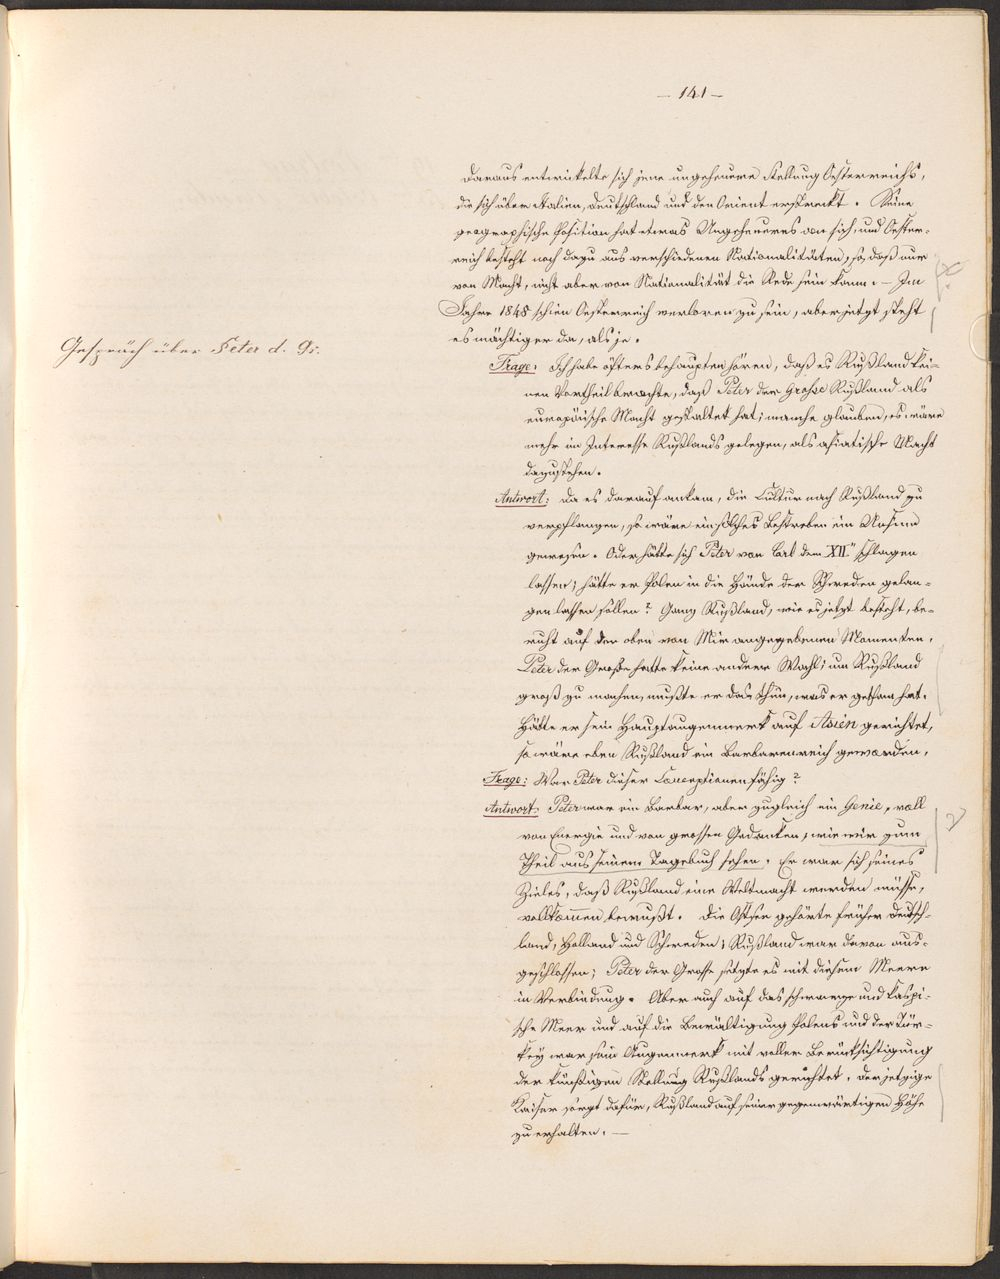 — 141 —
Daraus entwickelte sich jene ungeheuere Stellung Oesterreichs,
die sich über Italien, Deutschland und den Orient erstreckt. Seine
geographische Position hat etwas Ungeheueres an sich, und Oester-
reich besteht noch dazu aus verschiedenen Nationalitäten, so, daß nur
von Macht, nicht aber von Nationalität die Rede sein kann. — Im
Jahre 1848 schien Oesterreich verloren zu sein, aber jetzt steht
es mächtiger da, als je.
Gespräch über Peter d. Gr.
Frage: Ich habe öfters behaupten hören, daß es Rußland kei-
nen Vortheil brachte, daß Peter der Grosse Rußland als
europäische Macht gestaltet hat; manche glauben, es wäre
mehr im Interesse Rußlands gelegen, als asiatische Macht
dazustehen.
Antwort: Da es darauf ankam, die Cultur nach Rußland zu
verpflanzen, so wäre ein solches Bestreben ein Unsinn
gewesen. Oder hätte sich Peter von Carl dem XII. schlagen
lassen; hätte er Polen in die Hände der Schweden gelan-
gen lassen sollen? Ganz Rußland, wie es jetzt besteht, be-
ruht auf den oben von Mir angegebenen Momenten.
Peter der Große hatte keine andere Wahl; um Rußland
groß zu machen, mußte er das thun, was er gethan hat.
Hätte er sein Hauptaugenmerk auf Asien gerichtet,
so wäre eben Rußland ein Barbarenreich geworden.
Frage: War Peter dieser Conceptionen fähig?
Antwort: Peter war ein Barbar, aber zugleich ein Genie, voll
von Energie und von grossen Gedanken, wie wir zum
Theil aus seinem Tagebuch sehen. Er war sich seines
Zieles, daß Rußland eine Weltmacht werden müsse,
vollkommen bewußt. Die Ostsee gehörte früher Deutsch-
land, Holland und Schweden; Rußland war davon aus-
geschlossen; Peter der Grosse setzte es mit diesem Meere
in Verbindung. Aber auch auf das schwarze und kaspi-
sche Meer und auf die Bewältigung Polens und der Tür-
key war sein Augenmerk mit voller Berücksichtigung
der künftigen Stellung Rußlands gerichtet. Der jetzige
Kaiser sorgt dafür, Rußland auf seiner gegenwärtigen Höhe
zu erhalten. —